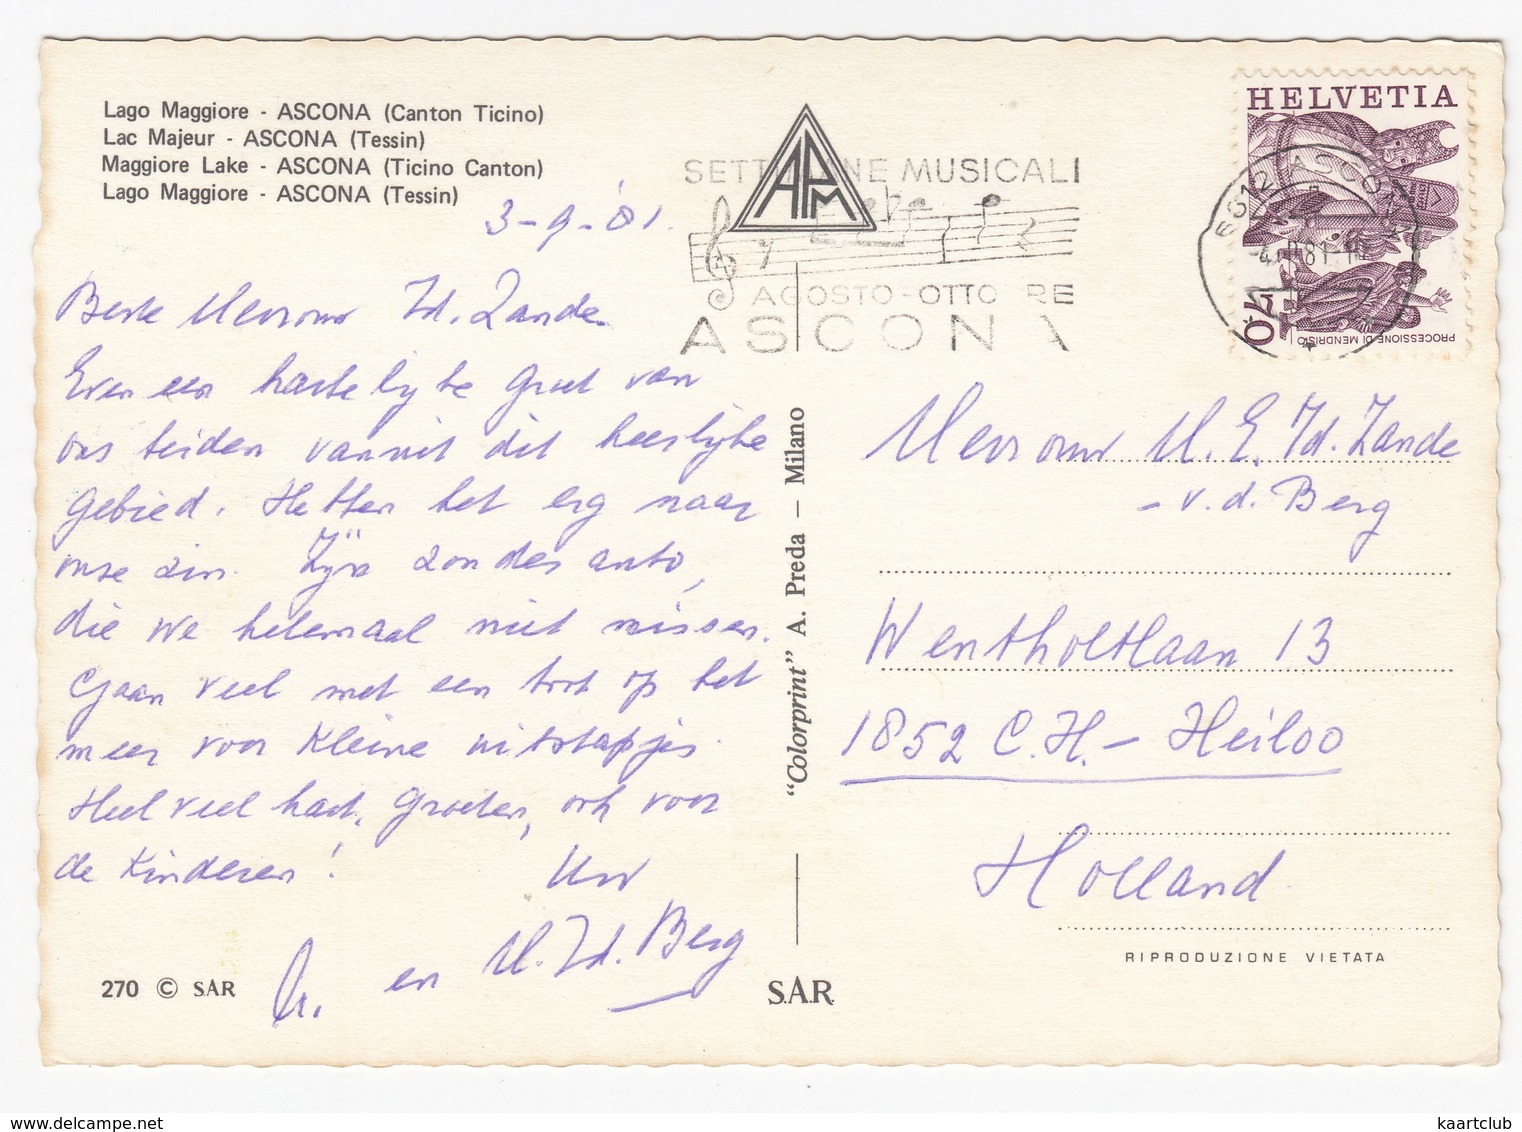 Lago Maggiore - ASCONA (Canton Ticino)
Lac Majeur - ASCONA (Tessin)
Maggiore Lake - ASCONA (Ticino Canton)
Lago Maggiore - ASCONA (Tessin)
3-9-'81.
Beste Mevrouw Id. Zande.
Even een hartelijke groet van
ons beiden vanuit dit heerlijke
gebied. Hebben het erg naar
onze zin. Zijn zonder auto,
die we helemaal niet missen.
Gaan veel met een boot op het
meer voor kleine uitstapjes.
Heel veel hart. groeten, ook voor
de kinderen!
Uw
en M. Id. Berg
270 © SAR
S.A.R.
"Colorprint" A. Preda - Milano
APM
SETTIMANE MUSICALI
AGOSTO-OTTO RE
ASCONA
HELVETIA
6612 ASCONA
70
PROCESSIONE DI MENDRISIO
Mevrouw M. E. Id. Zande
- v. d. Berg
Wentholtlaan 13
1852 C.H. - Heiloo
Holland.
RIPRODUZIONE VIETATA
www.delcampe.net
kaartclub